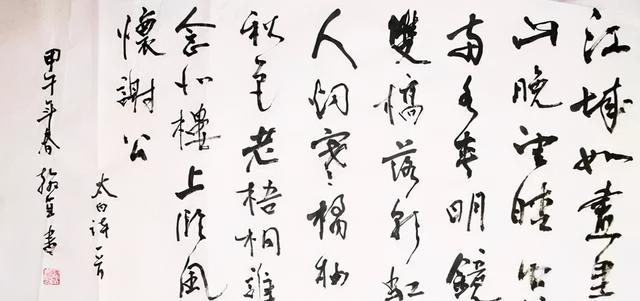 江城如畫里
山晚望晴空
兩水夾明鏡
雙橋落彩虹
人烟寒橘柚
秋色老梧桐誰
念北樓上臨風
懷謝公
太白詩一首
甲午年春 書